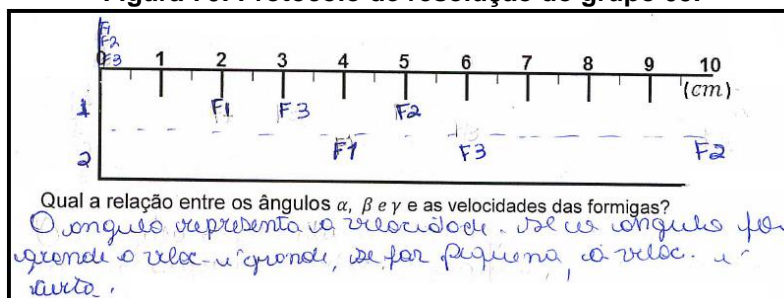 Figura 75: Protocolo de resolução do grupo
F1
F2
F3
0 1 2 3 4 5 6 7 8 9 10
(cm)
1 F1 F3 F2
2 F1 F3 F2
Qual a relação entre os ângulos α, β e γ e as velocidades das formigas?
O angulo representa a velocidade. se o angulo for
grande o veloc. é grande, se for pequena, a veloc. é
curta.